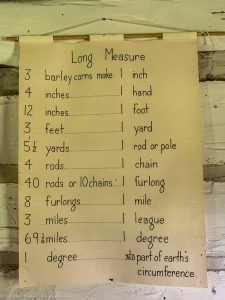 Long Measure
3 barley corns make 1 inch
4 inches............1 hand
12 inches............1 foot
3 feet............1 yard
5½ yards............1 rod or pole
4 rods............1 chain
40 rods or 10 chains..1 furlong
8 furlongs............1 mile
3 miles............1 league
69½ miles............1 degree
1 degree............1/360 part of earth's
circumference.